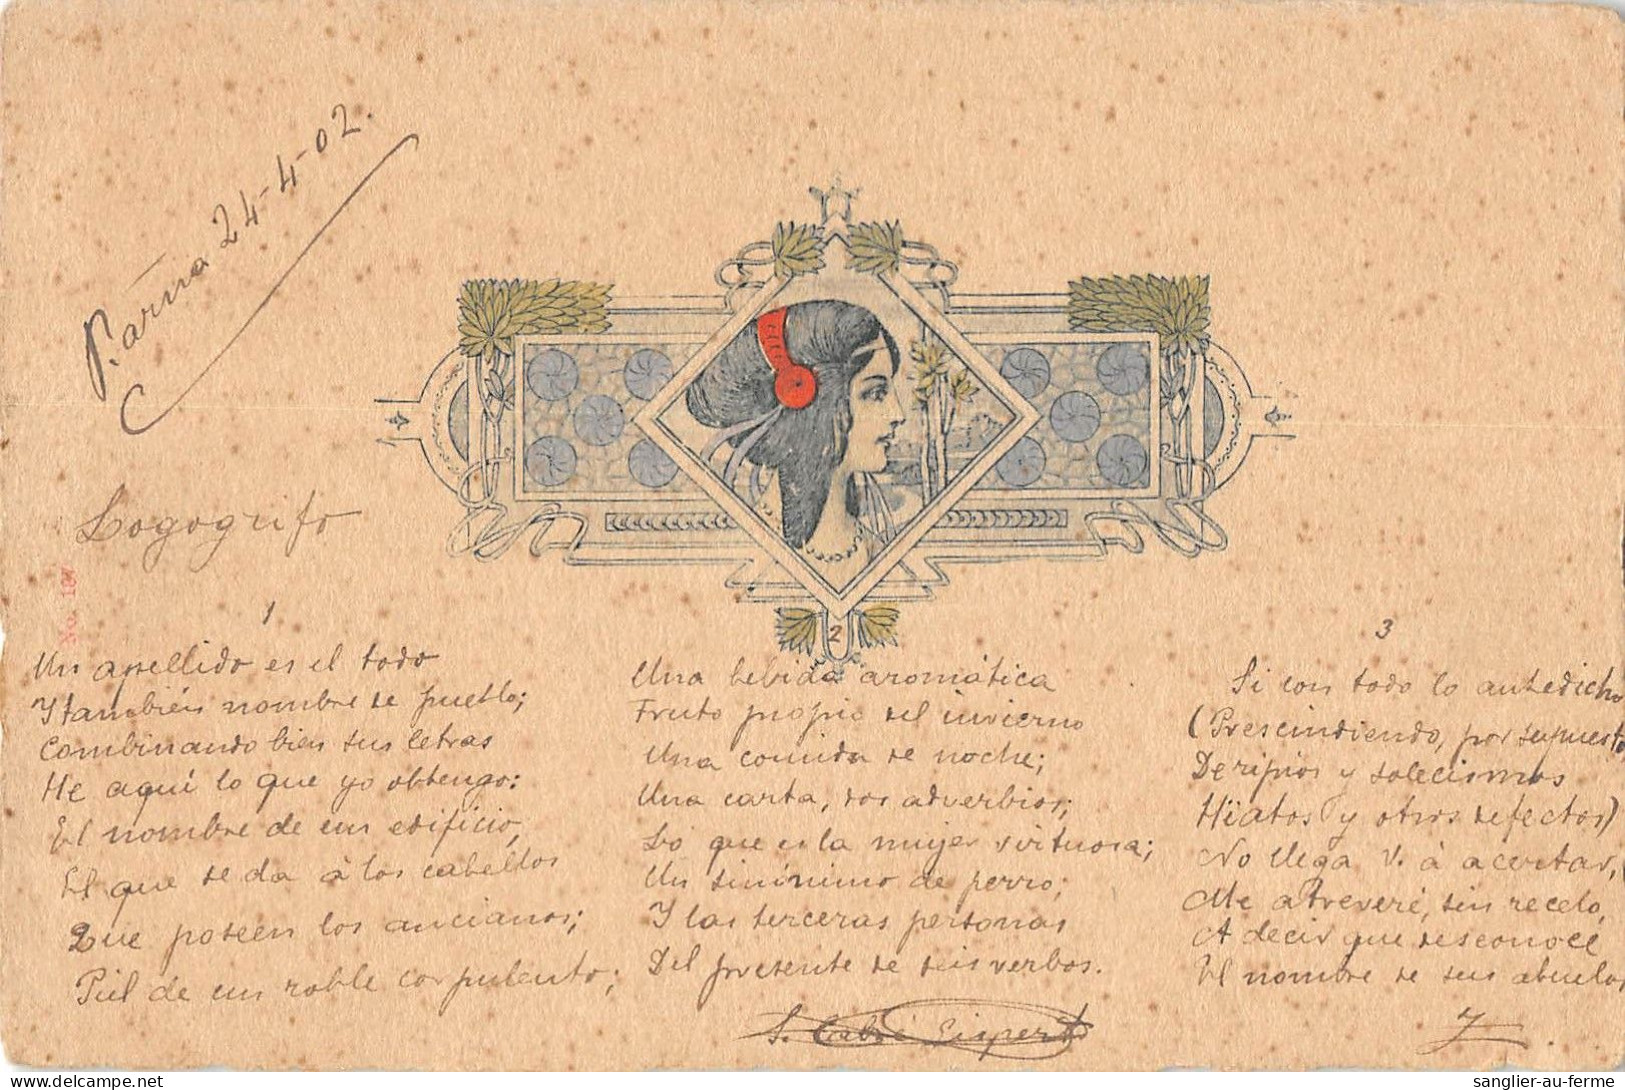 Parma 24-4-02.
Logogrifo
No. 167
1
Un apellido es el todo
Y también nombre de pueblo;
Combinando bien sus letras
He aquí lo que yo obtengo:
El nombre de un edificio,
El que se da à los cabellos
Que poseen los ancianos;
Piel de un roble corpulento;
2
Una bebida aromática
Fruto propio del invierno
Una comida de noche;
Una carta, dos adverbios;
Lo que es la mujer virtuosa;
Un sinónimo de perro;
Y las terceras personas
Del presente de seis verbos.
S. Gispert
3
Si con todo lo antedicho
(Prescindiendo, por supuesto,
De ripios y solecismos
Hiatos y otros defectos)
No llega V. á acertar,
Me atreveré, sin recelo,
A decir que desconoce
El nombre de sus abuelos
sanglier-au-ferme